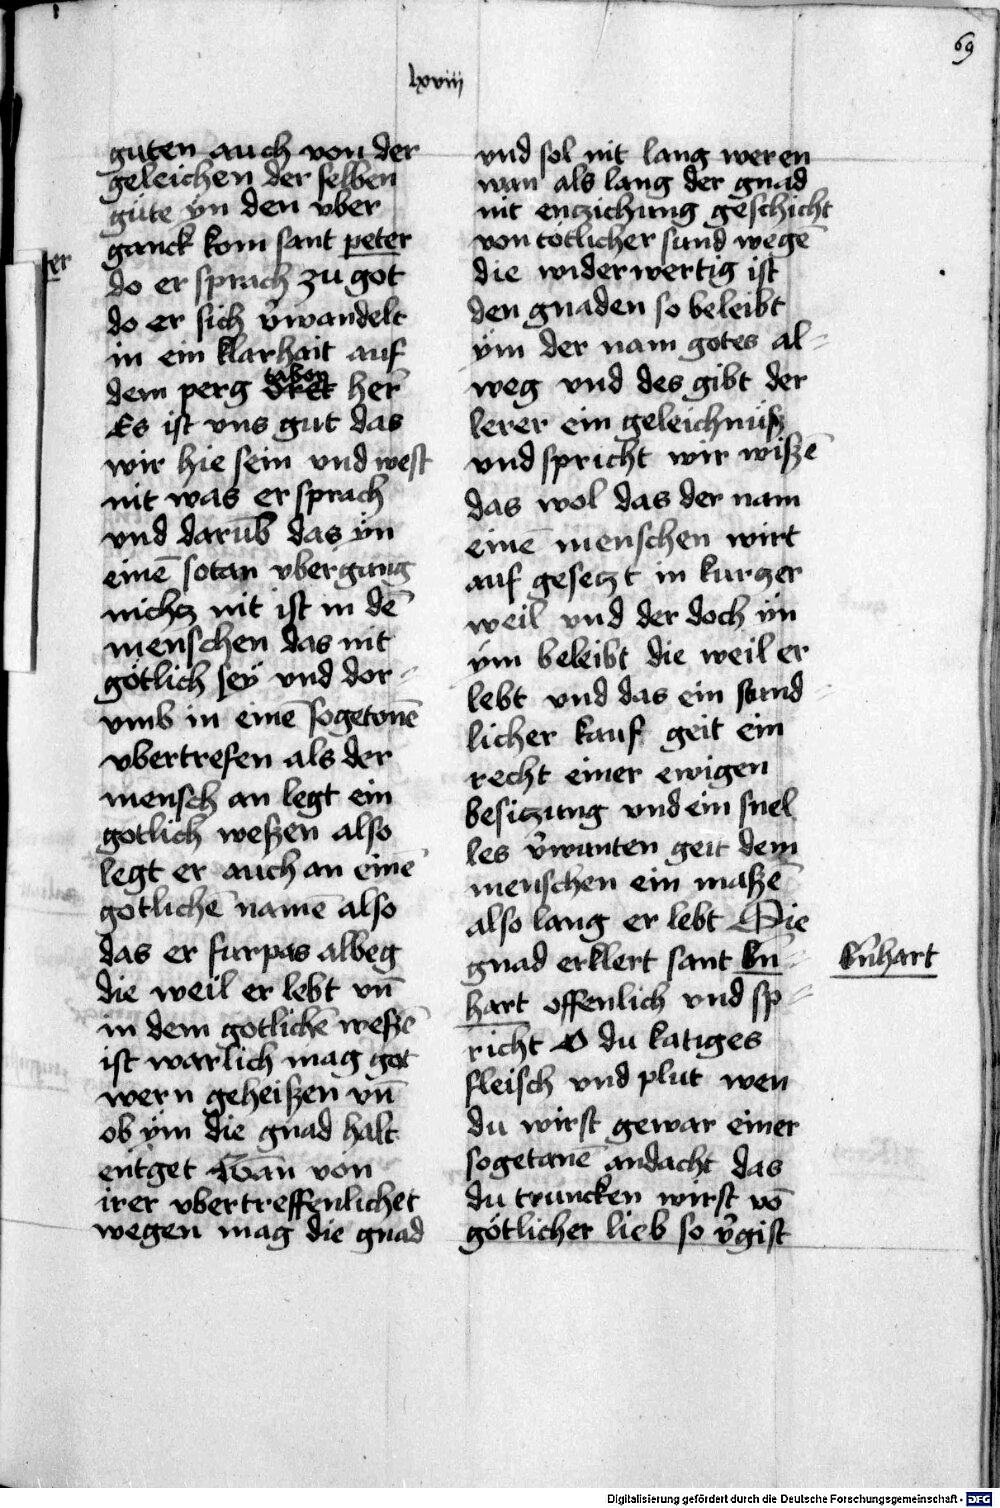 69
lxviii
guten auch von der
geleichen der selben
güte ÿn den vber
ganck kom sant peter
do er sprach zu got
do er sich v̄wandelt
in ein klarhait auf
dem perg tabor her̄
Es ist vns gut das
wir hie sein vnd west
nit was er sprach
vnd darūb das ÿn
einē sotan vbergang
nichtz nit ist in dē
menschen das nit
götlich seÿ vnd dor=
vmb in einē sogetonē
vbertrefen als der
mensch an legt ein
gotlich weſzen also
legt er auch an einē
gotlichē namē also
das er furpas albeg
die weil er lebt vn̄
in dem gotlichē weſzē
ist warlich mag got
wern geheiſzen vn̄
ob ÿm die gnad halt
entget Wān von
irer vbertreffenlichet
wegen mag die gnad
vnd sol nit lang weren
wan als lang der gnad
nit entzichung geschicht
von totlicher sund wegē
die widerwertig ist
den gnaden so beleibt
ÿm der nam gotes al=
weg vnd des gibt der
lerer ein geleichnuſz
vnd spricht wir wiſzē
das wol das der nam
einē menschen wirt
auf gesetzt in kurtzer
weil vnd der doch ÿn
ÿm beleibt die weil er
lebt vnd das ein stund=
licher kauf geit ein
recht einer ewigen
besitzung vnd ein snel
les v̄wanten geit dem
menschen ein maſzē
also lang er lebt Die
gnad erklert sant bn̄=
hart offenlich vnd sp=
richt O du katiges
fleisch vnd plut wen
du wirst gewar einer
sogetanē andacht das
du truncken wirst vō
götlicher lieb so v̄gist
er
bn̄hart
Digitalisierung gefördert durch die Deutsche Forschungsgemeinschaft - DFG